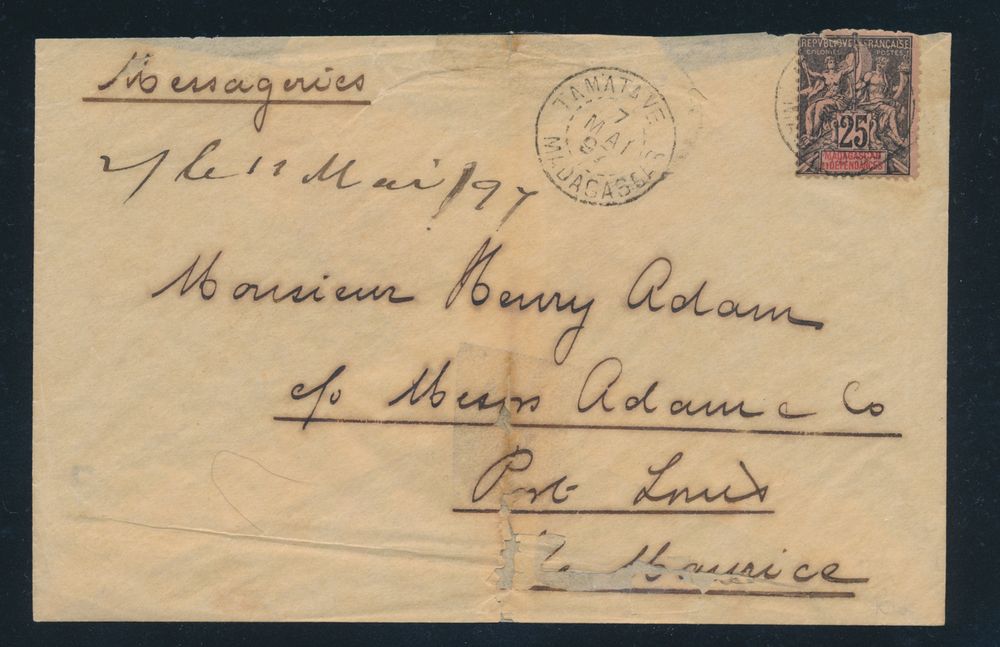 Messageries
le 11 Mai /97
TAMATAVE
7
MAI
MADAGASCAR
REPUBLIQUE FRANÇAISE
COLONIES POSTES
25
MADAGASCAR
ET DÉPENDANCES
Monsieur Henry Adam
c/o Messrs Adam & Co
Port Louis
Maurice